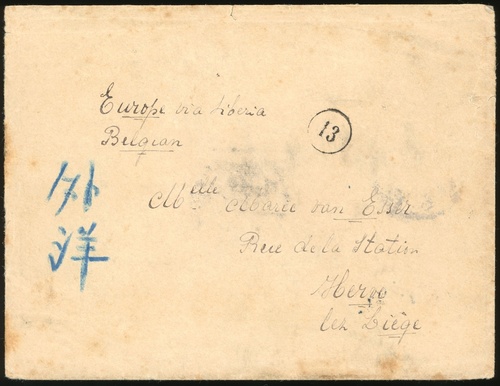 Europe via Siberia
Belgian
13
外洋
Melle Marie van Esser
Rue de la Station
Herve
lez Liège